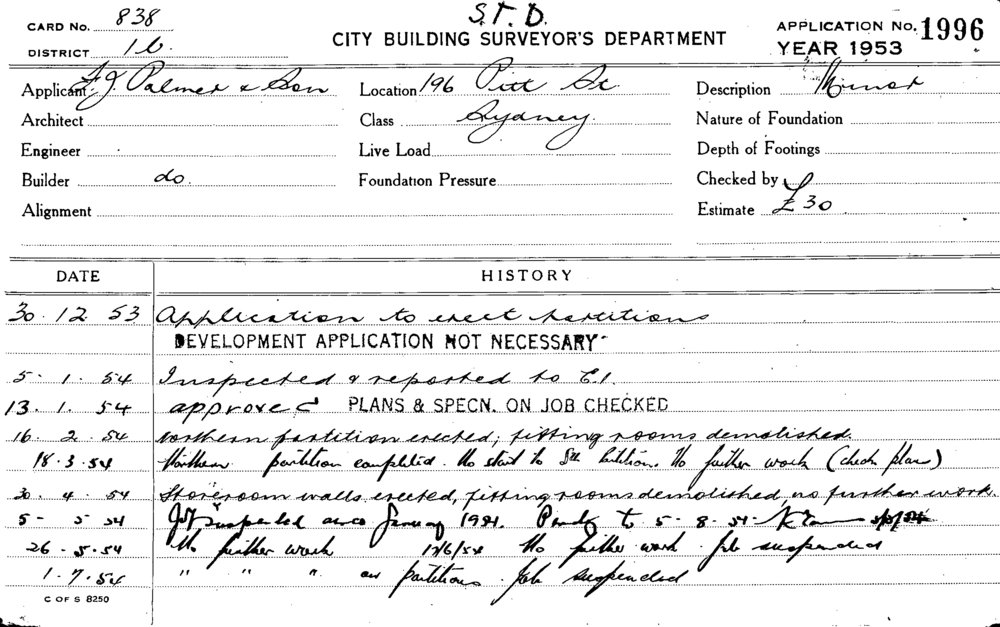 S.T.D.
CARD No. 838
CITY BUILDING SURVEYOR'S DEPARTMENT
APPLICATION No. 1996
DISTRICT 1b.
YEAR 1953
Applicant F.J. Palmer & Son
Location 196 Pitt St.
Description Minor
Architect
Class Sydney.
Nature of Foundation
Engineer
Live Load
Depth of Footings
Builder do.
Foundation Pressure
Checked by
Alignment
Estimate £30.
DATE HISTORY
30.12.53 Application to erect partitions
DEVELOPMENT APPLICATION NOT NECESSARY
5.1.54 Inspected & reported to C.I.
13.1.54 approved PLANS & SPECN. ON JOB CHECKED
16.2.54 Northern partition erected, fitting rooms demolished.
18.3.54 Northern partition completed. No start to Sth Partition. No further work (check plan)
30.4.54 Storeroom walls erected, fitting rooms demolished, no further work.
5-5 54 Job suspended since January 1954. to 5-8-54
26.5.54 No further work 17/6/54 No further work. Job suspended
1.7.54 " " " on partitions. Job suspended
C OF S 8250